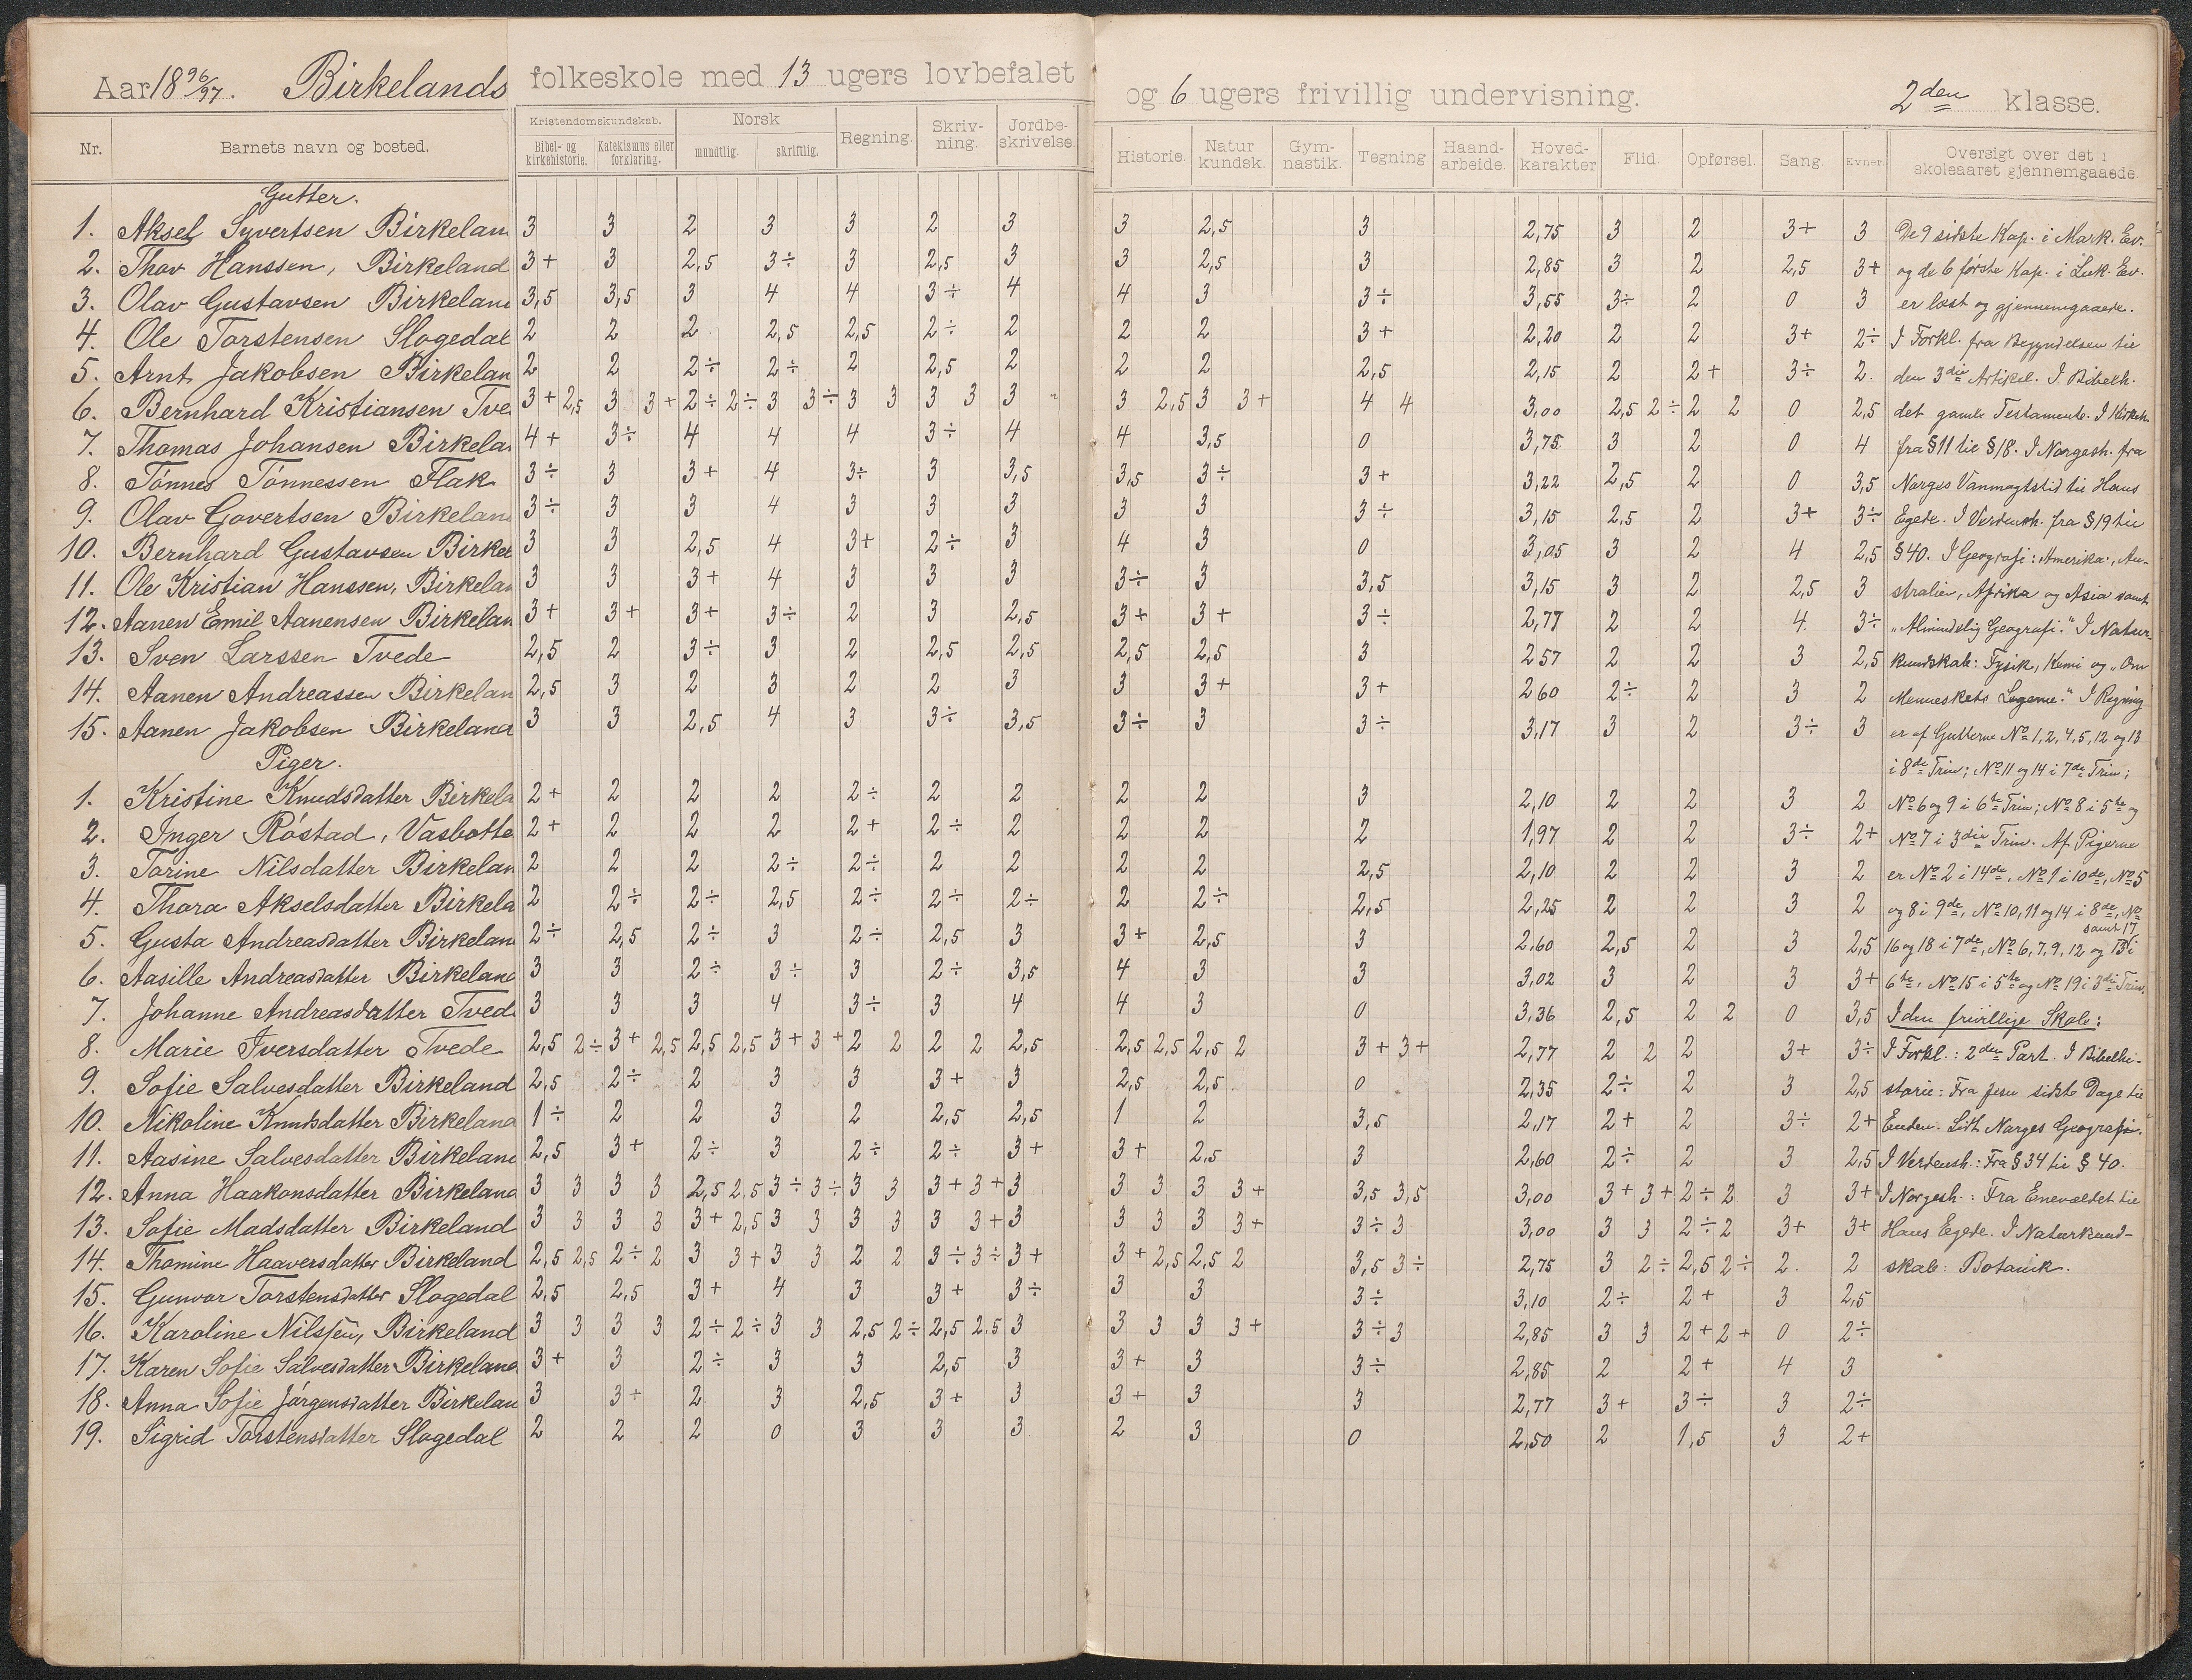 Aar 1896/97. Birkelands folkeskole med 13 ugers lovbefalet og 6 ugers frivillig undervisning. 2den klasse.
Nr. Barnets navn og bosted. Kristendomskundskab. Bibel- og kirkehistorie. Katekismus eller forklaring. Norsk mundtlig. skriftlig. Regning. Skriv-ning. Jordbe-skrivelse. Historie. Natur kundsk. Gym-nastik. Tegning Haand-arbeide. Hoved-karakter Flid. Opførsel. Sang. Evner Oversigt over det i skoleaaret gjennemgaaede.
Gutter.
1. Aksel Syvertsen Birkelan 3 3 2 3 3 2 3 3 2,5 3 2,75 3 2 3+ 3 De 9 sidste Kap. i Mark. Ev.
2. Thov Hanssen, Birkeland 3+ 3 2,5 3÷ 3 2,5 3 3 2,5 3 2,85 3 2 2,5 3+ og de 6 første Kap. i Luk. Ev.
3. Olav Gustavsen Birkelan 3,5 3,5 3 4 4 3÷ 4 4 3 3÷ 3,55 3÷ 2 0 3 er læst og gjennemgaaede.
4. Ole Torstensen Slogedal 2 2 2 2,5 2,5 2÷ 2 2 2 3+ 2,20 2 2 3+ 2÷ I Forkl. fra Begyndelsen til
5. Arnt Jakobsen Birkelan 2 2 2÷ 2÷ 2 2,5 2 2 2 2,5 2,15 2 2+ 3÷ 2. den 3die Artikel. I Bibelh.
6. Bernhard Kristiansen Tve 3+ 2,5 3 3+ 2÷ 2÷ 3 3÷ 3 3 3 3 3 " 3 2,5 3 3+ 4 4 3,00 2,5 2÷ 2 2 0 2,5 det gamle Testamente. I Kirkeh.
7. Thomas Johansen Birkela 4+ 3÷ 4 4 4 3÷ 4 4 3,5 0 3,75 3 2 0 4 fra § 11 til § 18. I Norgesh. fra
8. Tønnes Tønnessen Flak 3÷ 3 3+ 4 3÷ 3 3,5 3,5 3÷ 3+ 3,22 2,5 2 0 3,5 Norges Vanmagtstid til Hans
9. Olav Govertsen Birkelan 3÷ 3 3 4 3 3 3 3 3 3÷ 3,15 2,5 2 3+ 3÷ Egede. I Verdensh. fra § 19 til
10. Bernhard Gustavsen Birkel 3 3 2,5 4 3+ 2÷ 3 4 3 0 3,05 3 2 4 2,5 § 40. I Geografi: Amerika, Au-
11. Ole Kristian Hanssen, Birkelan 3 3 3+ 4 3 3 3 3÷ 3 3,5 3,15 3 2 2,5 3 stralien, Afrika og Asia samt
12. Aanen Emil Aanensen Birkelan 3+ 3+ 3+ 3÷ 2 3 2,5 3+ 3+ 3÷ 2,77 2 2 4 3÷ „Almindelig Geografi." I Natur-
13. Sven Larssen Tvede 2,5 2 3÷ 3 2 2,5 2,5 2,5 2,5 3 2 57 2 2 3 2,5 kundskab: Fysik, Kemi og „Om
14. Aanen Andreassen Birkelan 2,5 3 2 3 2 2 3 3 3+ 3+ 2 60 2÷ 2 3 2 Menneskets Legeme." I Regning
15. Aanen Jakobsen Birkeland 3 3 2,5 4 3 3÷ 3,5 3÷ 3 3÷ 3,17 3 2 3÷ 3 er af Gutterne No 1, 2, 4, 5, 12 og 13
Piger. i 8de Trin; No 11 og 14 i 7de Trin;
1. Kristine Knudsdatter Birkela 2+ 2 2 2 2÷ 2 2 2 2 3 2,10 2 2 3 2 No 6 og 9 i 6te Trin; No 8 i 5te og
2. Inger Røstad, Vasbotte 2+ 2 2 2 2+ 2÷ 2 2 2 2 1,97 2 2 3÷ 2+ No 7 i 3die Trin. Af Pigerne
3. Torine Nilsdatter Birkelan 2 2 2 2÷ 2÷ 2 2 2 2 2,5 2,10 2 2 3 2 er No 2 i 14de, No 1 i 10de, No 5
4. Thora Akselsdatter Birkela 2 2÷ 2÷ 2,5 2÷ 2÷ 2÷ 2 2÷ 2,5 2,25 2 2 3 2 og 8 i 9de, No 10, 11 og 14 i 8de, No
samt 17
5. Gusta Andreasdatter Birkelan 2÷ 2,5 2÷ 3 2÷ 2,5 3 3+ 2,5 3 2,60 2,5 2 3 2,5 16 og 18 i 7de, No 6, 7, 9, 12 og 13 i
6. Aasille Andreasdatter Birkeland 3 3 2÷ 3÷ 3 2÷ 3,5 4 3 3 3,02 3 2 3 3+ 6te, No 15 i 5te og No 19 i 3die Trin.
7. Johanne Andreasdatter Tved 3 3 3 4 3÷ 3 4 4 3 0 3,36 2,5 2 2 0 3,5 I den frivillige Skole:
8. Marie Iversdatter Tvede 2,5 2÷ 3+ 2,5 2,5 2,5 3+ 3+ 2 2 2 2 2,5 2,5 2,5 2,5 2 3+ 3+ 2,77 2 2 2 3+ 3÷ I Forkl.: 2den Part. I Bibelhi-
9. Sofie Salvesdatter Birkeland 2,5 2÷ 2 3 3 3+ 3 2,5 2,5 0 2,35 2÷ 2 3 2,5 storie: Fra Jesu sidste Dage til
10. Nikoline Knudsdatter Birkeland 1÷ 2 2 3 2 2,5 2,5 1 2 3,5 2,17 2+ 2 3÷ 2+ Enden. Lidt Norges Geografi.
11. Aasine Salvesdatter Birkelan 2,5 3+ 2÷ 3 2÷ 2÷ 3+ 3+ 2,5 3 2,60 2÷ 2 3 2,5 I Verdensh.: Fra § 34 til § 40.
12. Anna Haakonsdatter Birkeland 3 3 3 3 2,5 2,5 3÷ 3÷ 3 3 3+ 3+ 3 3 3 3 3+ 3,5 3,5 3,00 3+ 3+ 2÷ 2 3 3+ I Norgesh.: Fra Enevældet til
13. Sofie Madsdatter Birkeland 3 3 3 3 3+ 2,5 3 3 3 3 3 3+ 3 3 3 3 3+ 3÷ 3 3,00 3 3 2÷ 2 3+ 3+ Hans Egede. I Naturkund-
14. Thomine Haaversdatter Birkeland 2,5 2,5 2÷ 2 3 3+ 3 3 2 2 3÷ 3÷ 3+ 3+ 2,5 2,5 2 3,5 3÷ 2,75 3 2÷ 2,5 2÷ 2. 2 skab: Botanik.
15. Gunvor Torstensdatter Slogedal 2,5 2,5 3+ 4 3 3+ 3÷ 3 3 3÷ 3,10 2÷ 2+ 3 2,5
16. Karoline Nilssen, Birkeland 3 3 3 3 2÷ 2÷ 3 3 2,5 2÷ 2,5 2,5 3 3 3 3 3+ 3÷ 3 2,85 3 3 2+ 2+ 0 2÷
17. Karen Sofie Salvesdatter Birkeland 3+ 3 2÷ 3 3 2,5 3 3+ 3 3÷ 2,85 2 2+ 4 3
18. Anna Sofie Jørgensdatter Birkelan 3 3+ 2 3 2,5 3+ 3 3+ 3 3 2,77 3+ 3÷ 3 2÷
19. Sigrid Torstensdatter Slogedal 2 2 2 0 3 3 3 2 3 0 2,50 2 1,5 3 2+